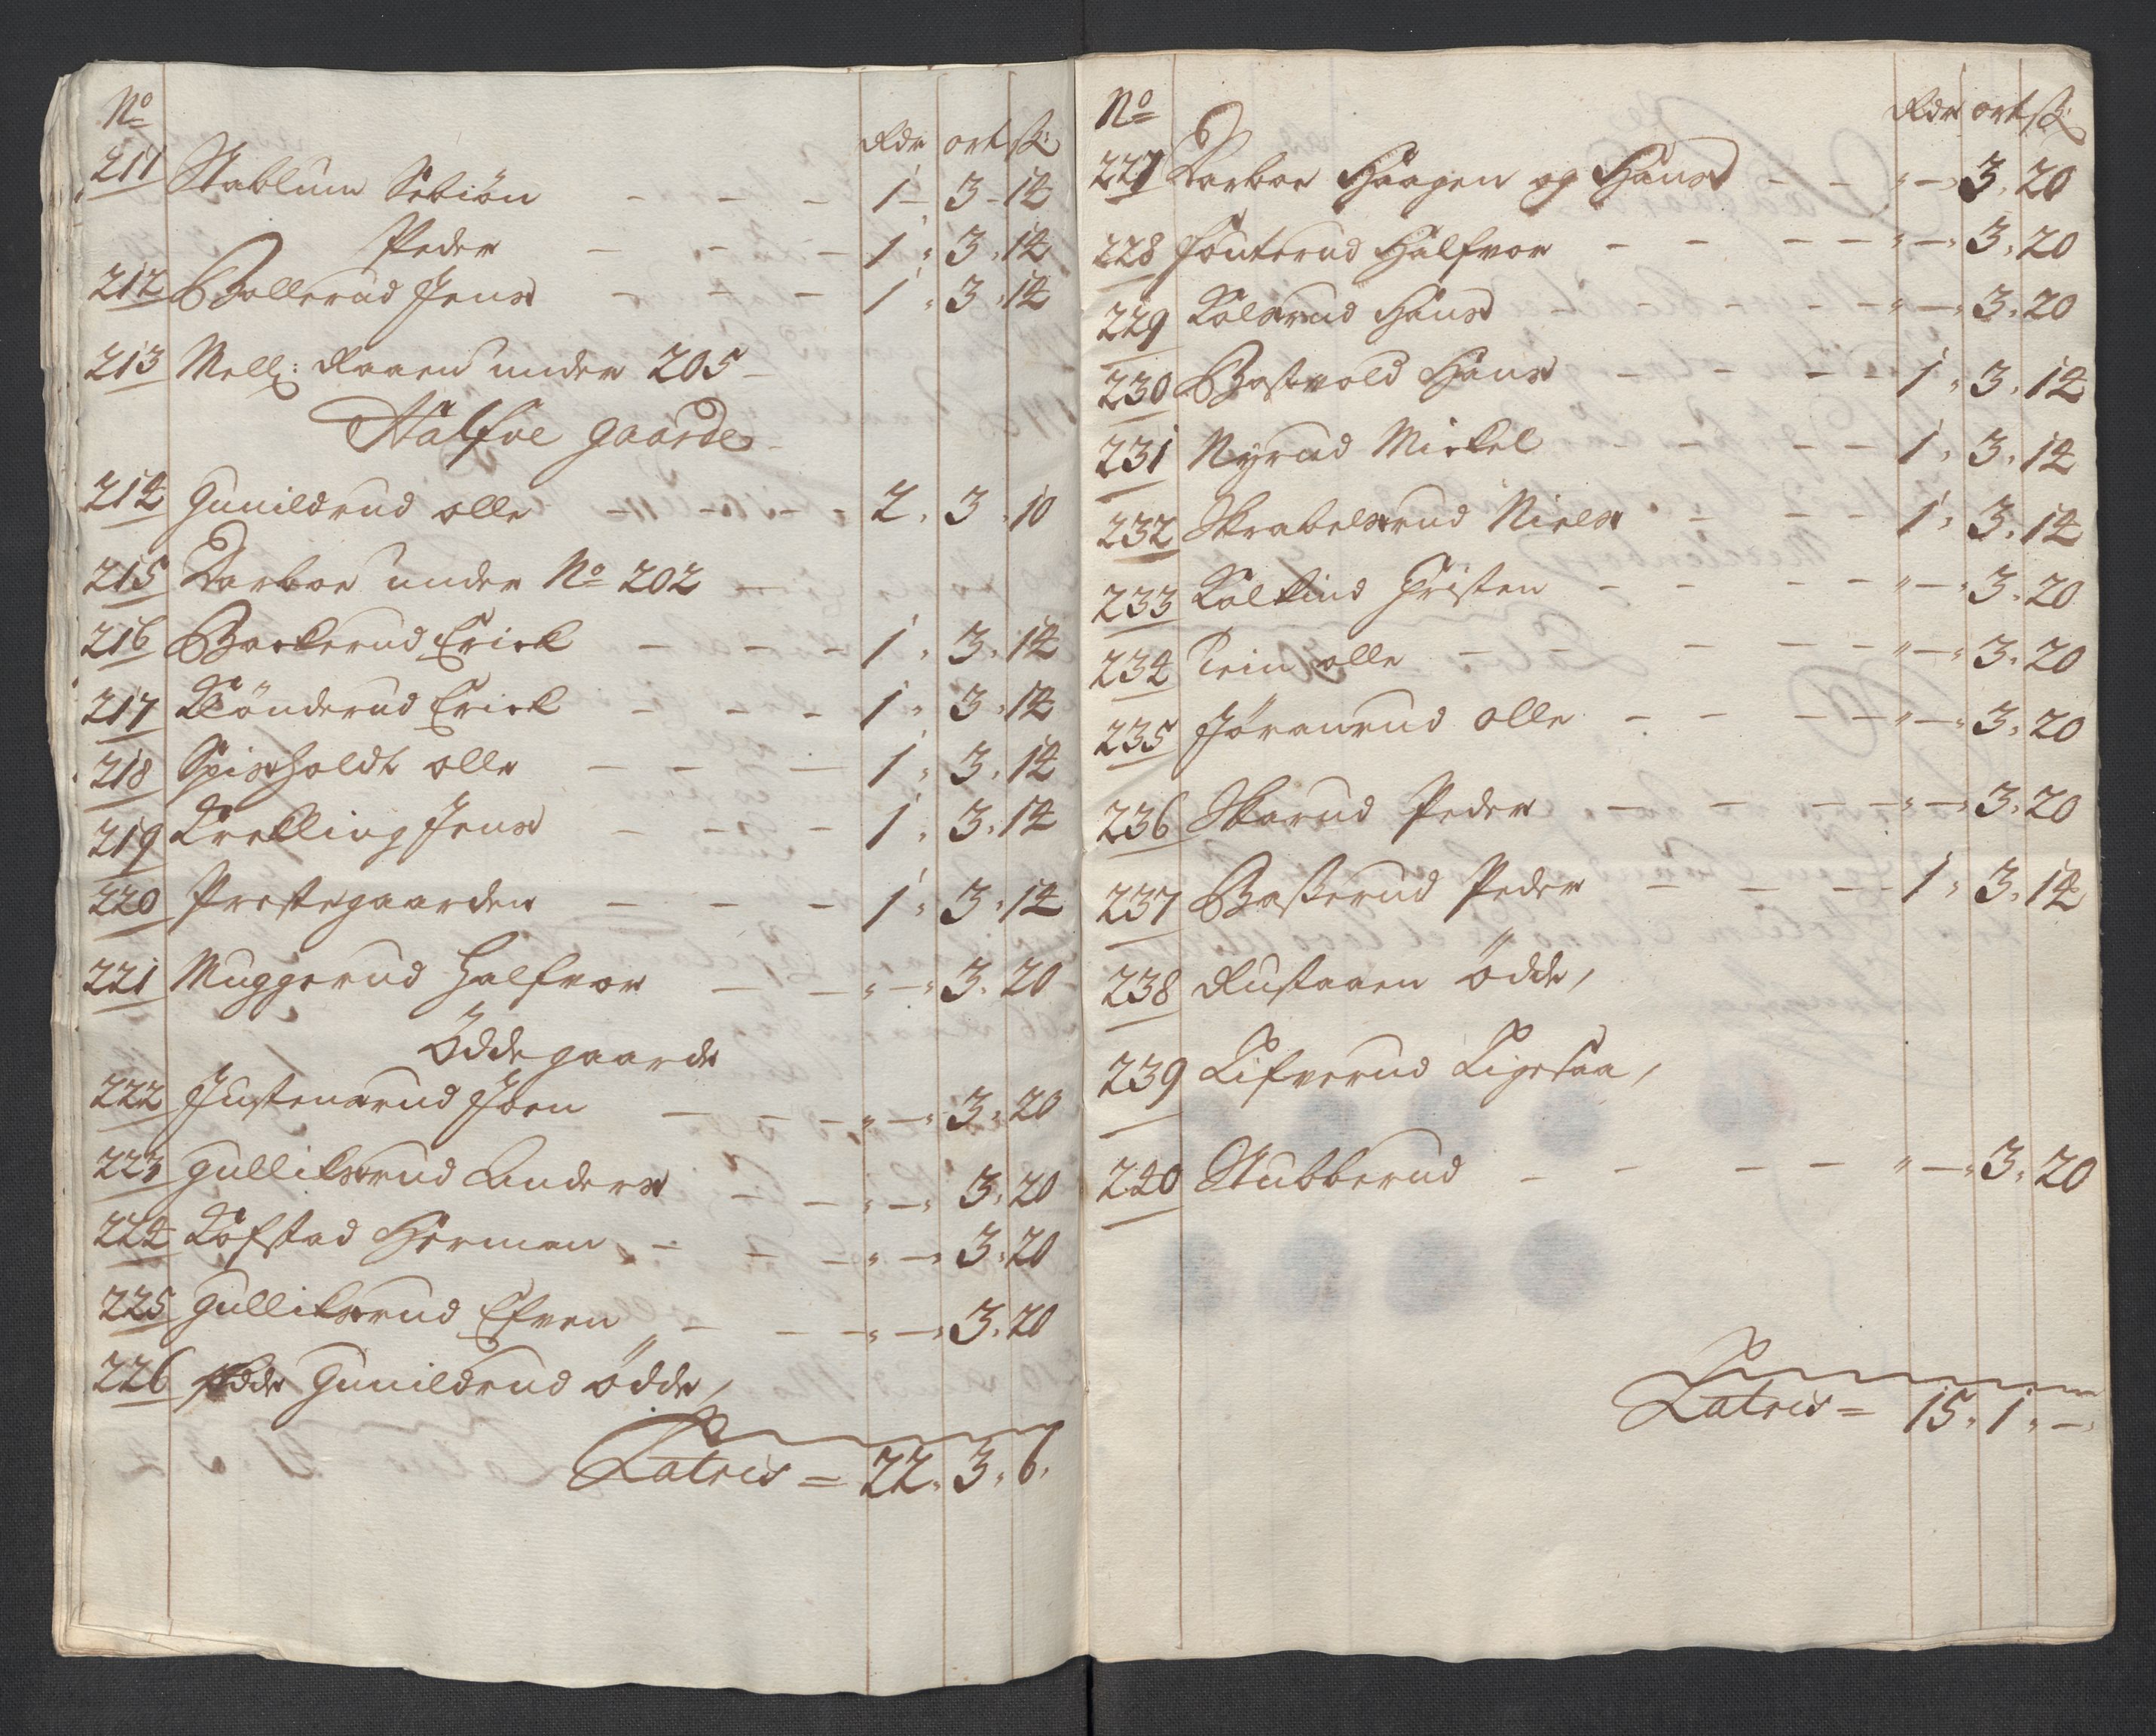 No
Rdr ort ß:
211 Stablum Sebiön - - - 1 - 3 - 14
Peder - - - 1 " 3 " 14
212 Bollerud Jens - - - 1 " 3 " 14
213 Mell: Raaen under 205 -
Halfve gaarde
214 Gunildrud olle - - - - 2 " 3 " 10
215 Darboe under No 202 -
216 Barkerud Erick - - - 1 " 3 " 14
217 Klönderud Erick - - - 1 " 3 " 14
218 Spiseholdt olle - - - 1 " 3 " 14
219 Krekling Jens - - - 1 " 3 " 14
220 Prestegaarden - - - 1 " 3 " 14
221 Muggerud Halfvor - - " - " 3 " 20
Ödde gaarde
222 Justensrud Joen - - - " - " 3 " 20
223 Gulliksrud Anders - - " - " 3 " 20
224 Kofstad Herman - - - " - " 3 " 20
225 Gulliksrud Efven - - - " - " 3 " 20
226 Gunildrud Ödde,
Latris = 22 " 3 " 6 "
No
Rdr ort ß
227 Darboe Haagen og Hans - - " - " 3 " 20
228 Fouterud Halfvor - - - - " - " 3 " 20
229 Kolsrud Hans - - - - " - " 3 " 20
230 Bastvold Hans - - - - 1 " 3 " 14
231 Nyrud Mickel - - - - 1 " 3 " 14
232 Skrabelsrud Niels - - - 1 " 3 " 14
233 Kolkind Christen - - - - " - " 3 " 20
234 Tein olle - - - - - " - " 3 " 20
235 Jöranrud olle - - - - " - " 3 " 20
236 Skarud Peder - - - - " - " 3 " 20
237 Basserud Peder - - - - 1 " 3 " 14
238 Rustaaen Ödde,
239 Lifverud Ligesaa,
240 Stubberud - - - - " - " 3 " 20
Latris = 15 " 1 " -